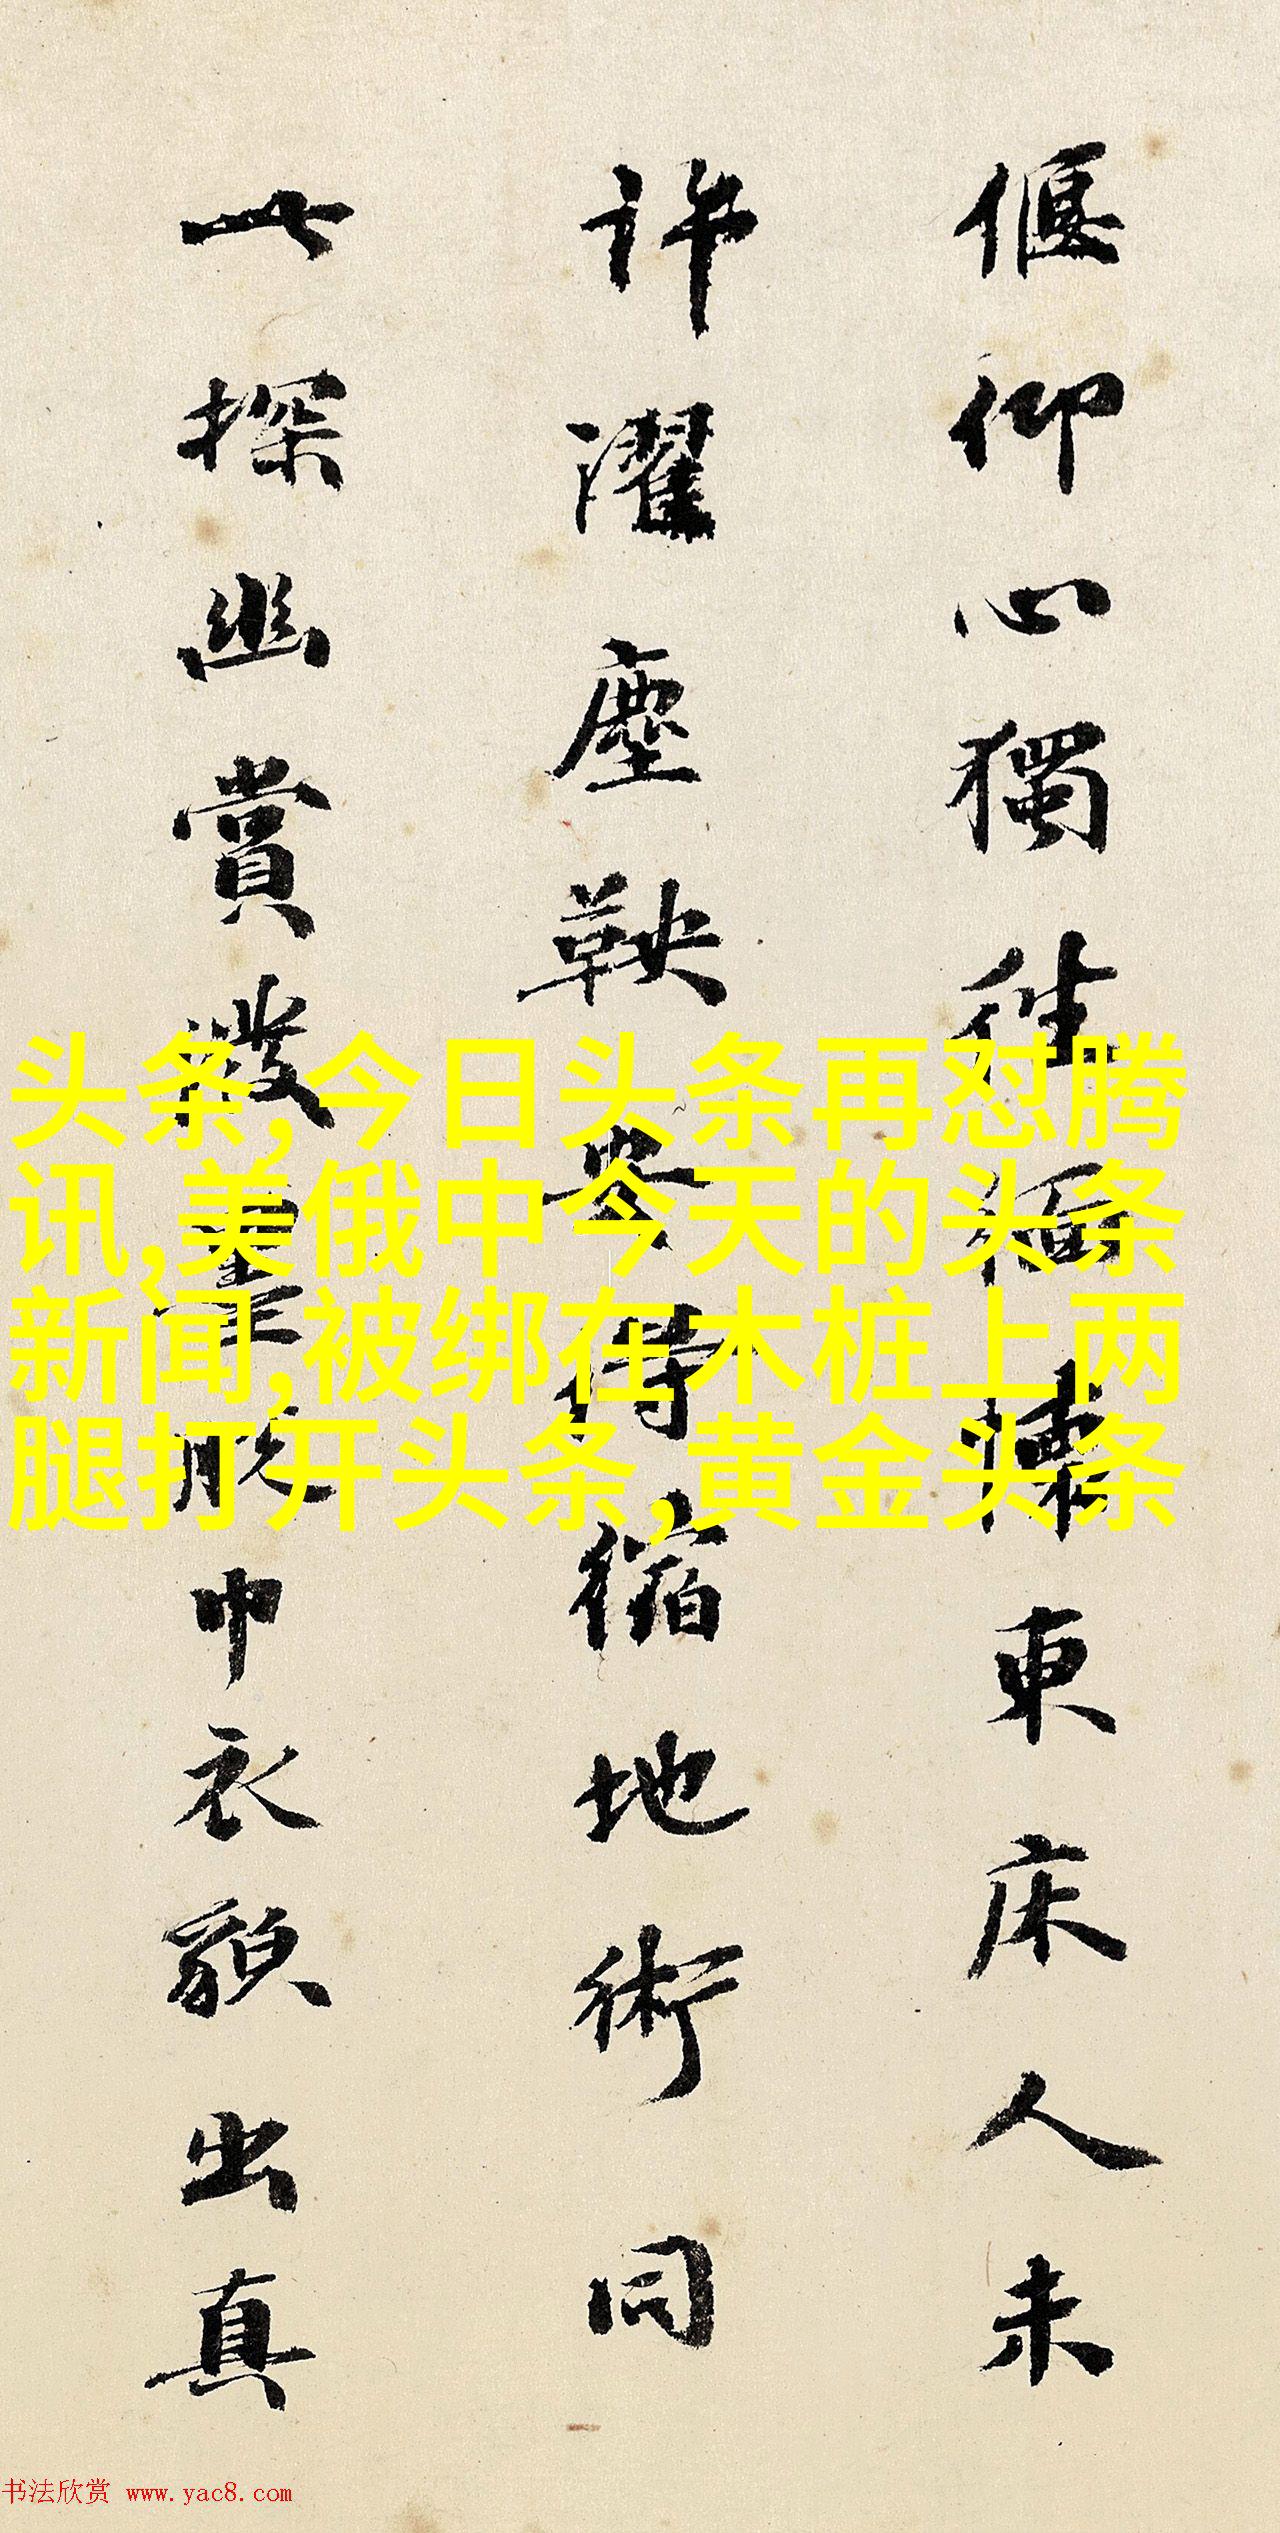 偃仰心獨往緬懷東床人未
許濯塵鞅安得縮地術同
此探幽賞潑墨脫巾衣貌出真
头条,今日头条再怼腾
讯,美俄中今天的头条
新闻,被绑在木桩上两
腿打开头条,黄金头条
书法欣赏 www.yac8.com